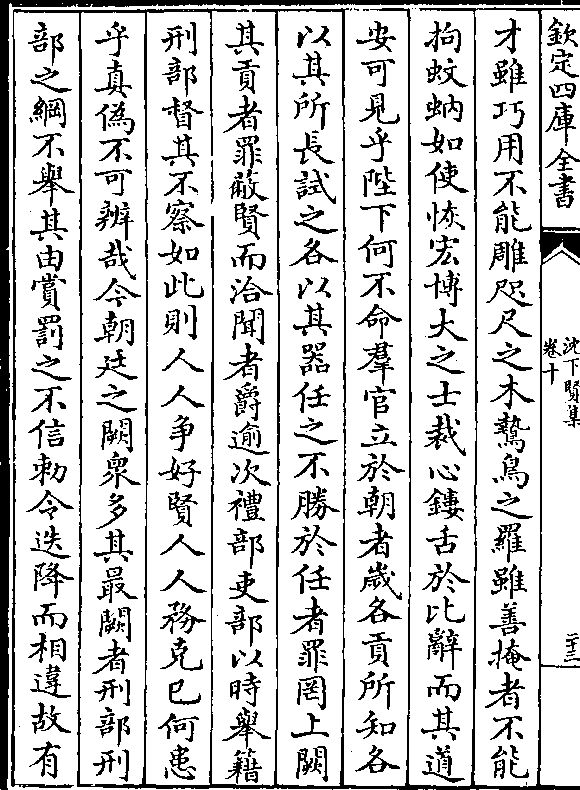 欽定四庫全書
沈下賢集
卷十
二十三
才雖巧用不能雕咫尺之木鷙鳥之羅雖善掩者不能
拘蚊蚋如使恢宏博大之士裁心鏤舌於比辭而其道
安可見乎陛下何不命羣官立於朝者歲各貢所知各
以其所長試之各以其器任之不勝於任者罪罔上闕
其貢者罪蔽賢而洽聞者爵逾次禮部吏部以時舉籍
刑部督其不察如此則人人爭好賢人人務克已何患
乎真偽不可辨哉今朝廷之闕衆多其最闕者刑部刑
部之綱不舉其由賞罰之不信勅令迭降而相違故有